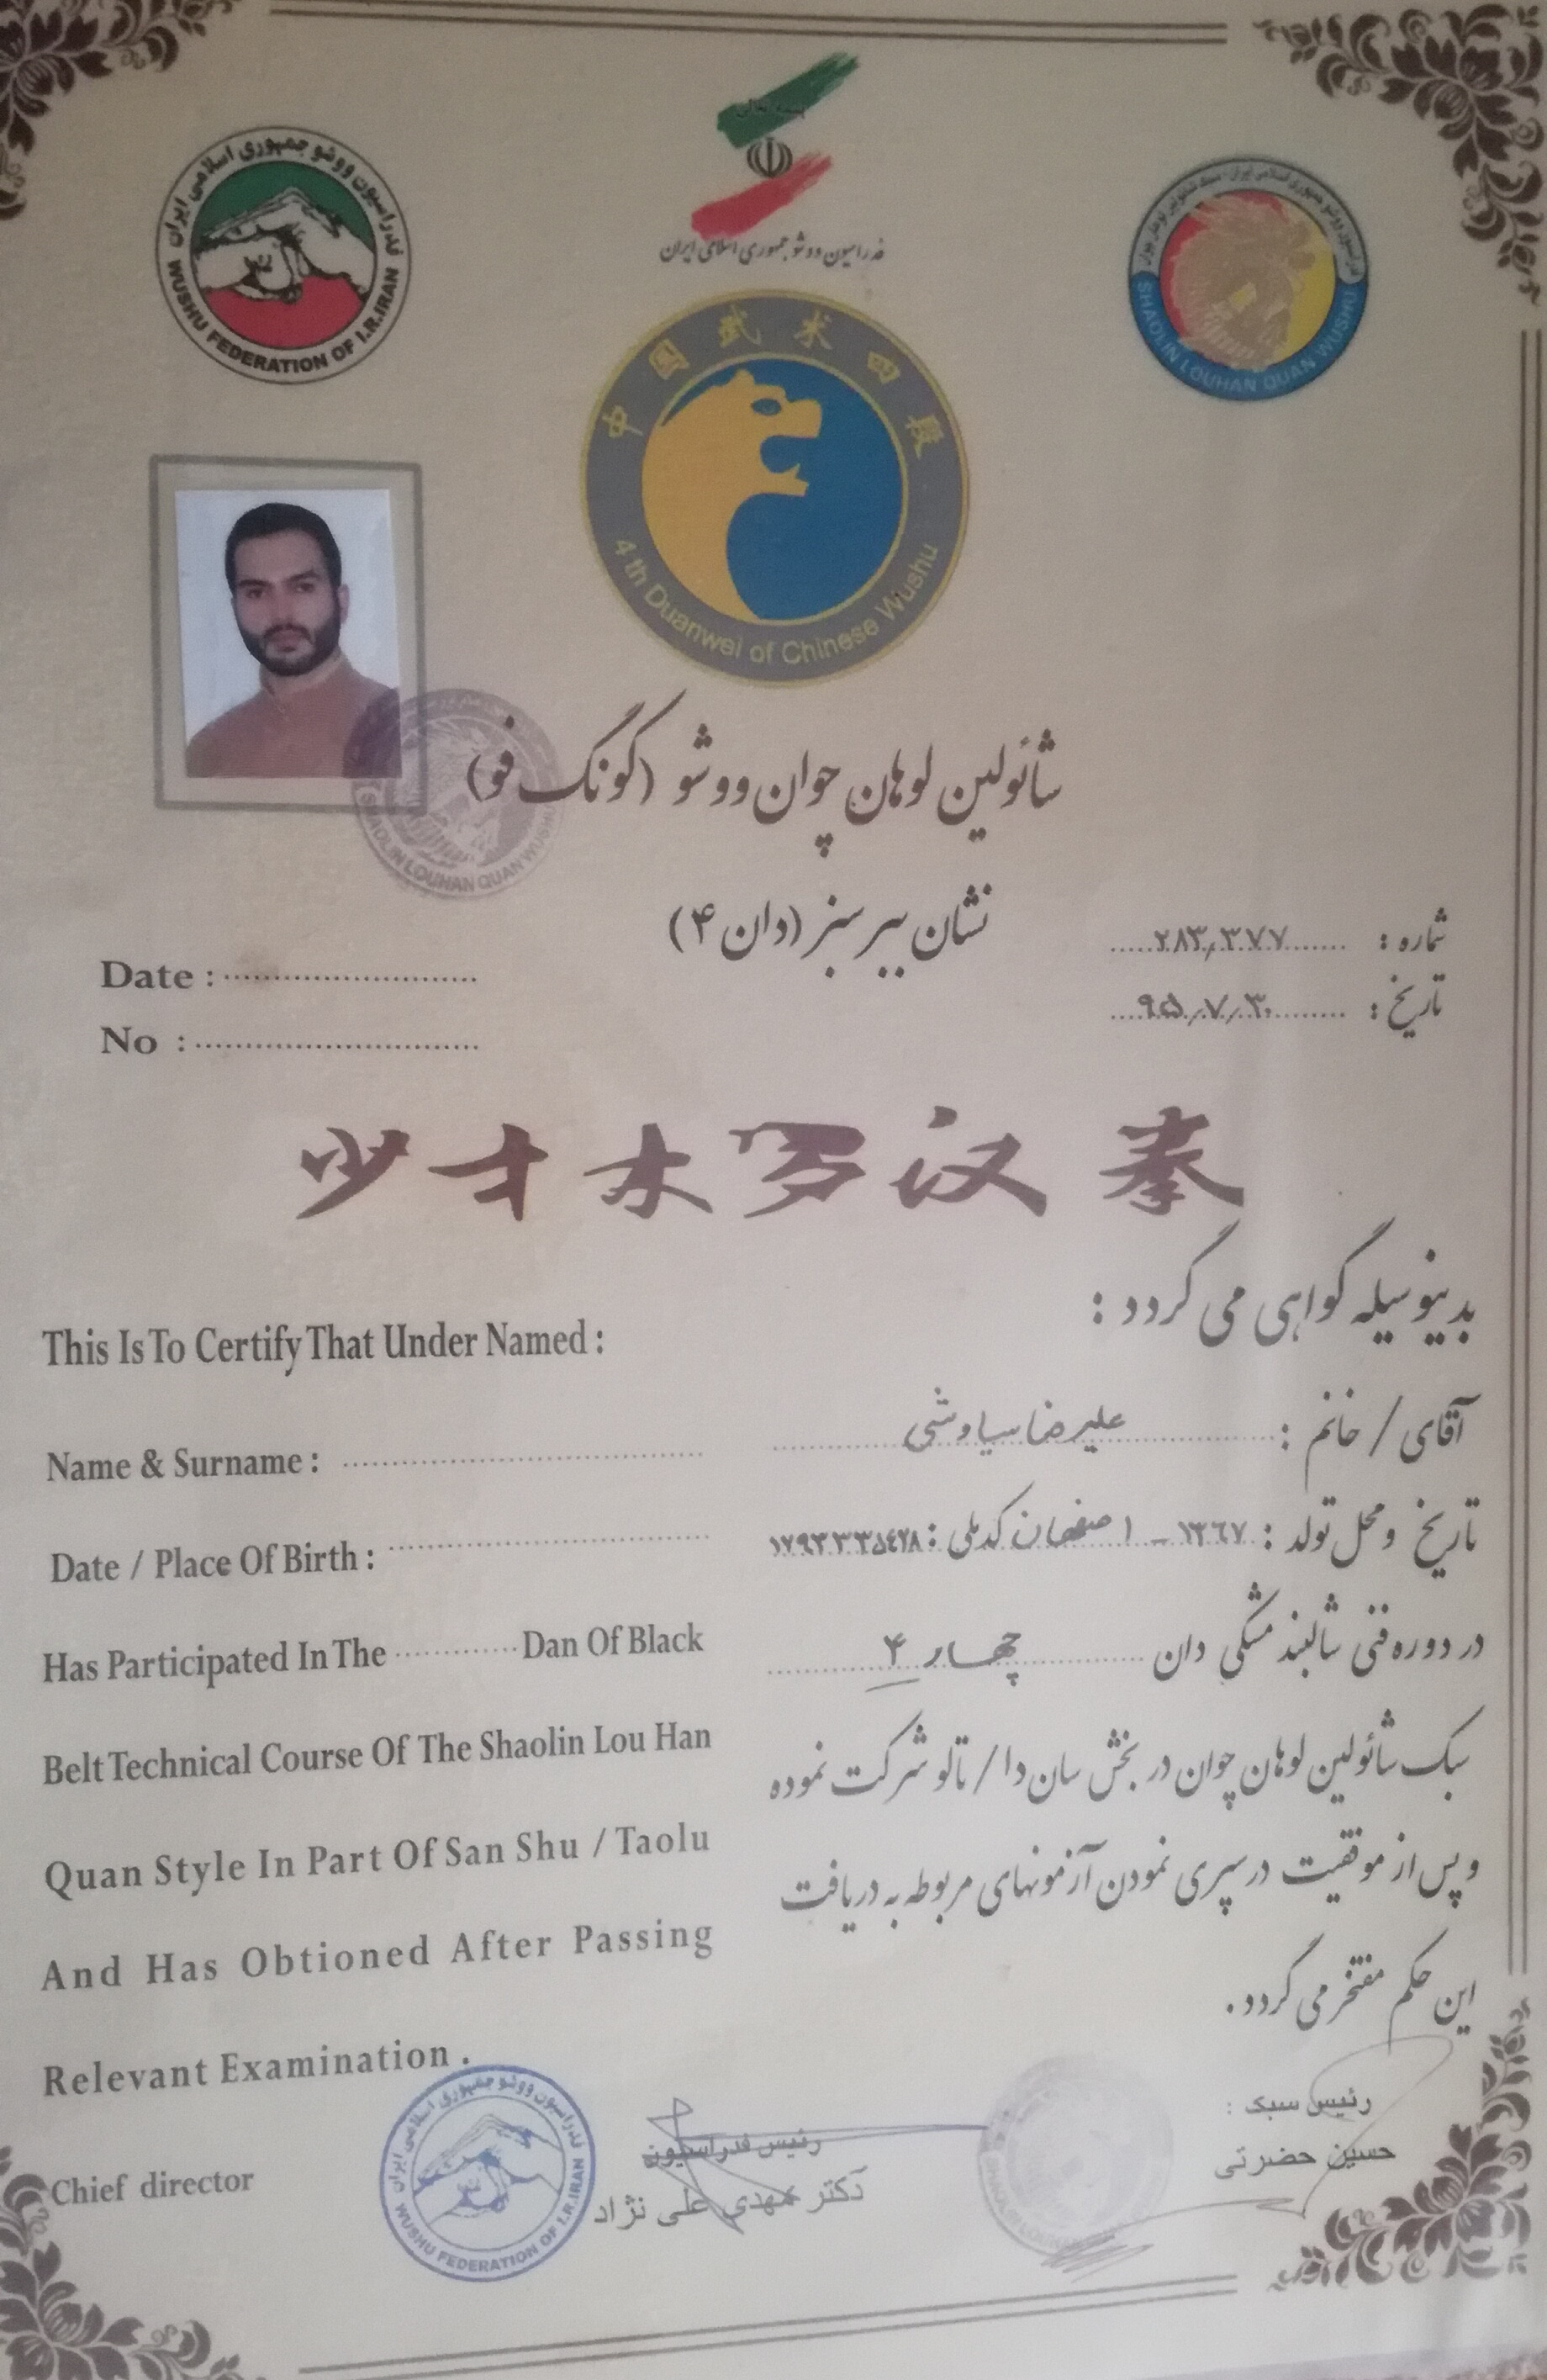 بسمه تعالی
فدراسیون ووشو جمهوری اسلامی ایران
فدراسیون ووشو جمهوری اسلامی ایران
WUSHU FEDERATION OF I.R.IRAN
SHAOLIN LOUHAN QUAN WUSHU
中國武术四段
4 th Duanwei of Chinese Wushu
SHAOLIN LOUHAN QUAN WUSHU
شائولین لوهان چوان ووشو (کونگ فو)
نشان ببر سبز (دان ۴)
شماره : ۲۸۳٫۳۷۷
تاریخ : ۹۵٫۷٫۳۰
Date :
No :
少才木罗汉拳
بدینوسیله گواهی می گردد :
This Is To Certify That Under Named :
آقای / خانم : علیرضا سیاوشی
Name & Surname :
تاریخ و محل تولد : ۱۳۶۷ - اصفهان کدملی : ۱۷۹۳۳۳۵۴۲۸
Date / Place Of Birth :
در دوره فنی شالبند مشکی دان چهار ۴
Has Participated In The Dan Of Black
سبک شائولین لوهان چوان در بخش سان دا / تالو شرکت نموده
Belt Technical Course Of The Shaolin Lou Han
و پس از موفقیت در سپری نمودن آزمونهای مربوطه به دریافت
Quan Style In Part Of San Shu / Taolu
این حکم مفتخر می گردد .
And Has Obtioned After Passing
Relevant Examination .
رئیس سبک :
حسین حضرتی
رئیس فدراسیون
دکتر مهدی علی نژاد
Chief director
فدراسیون ووشو جمهوری اسلامی ایران
WUSHU FEDERATION OF I.R.IRAN